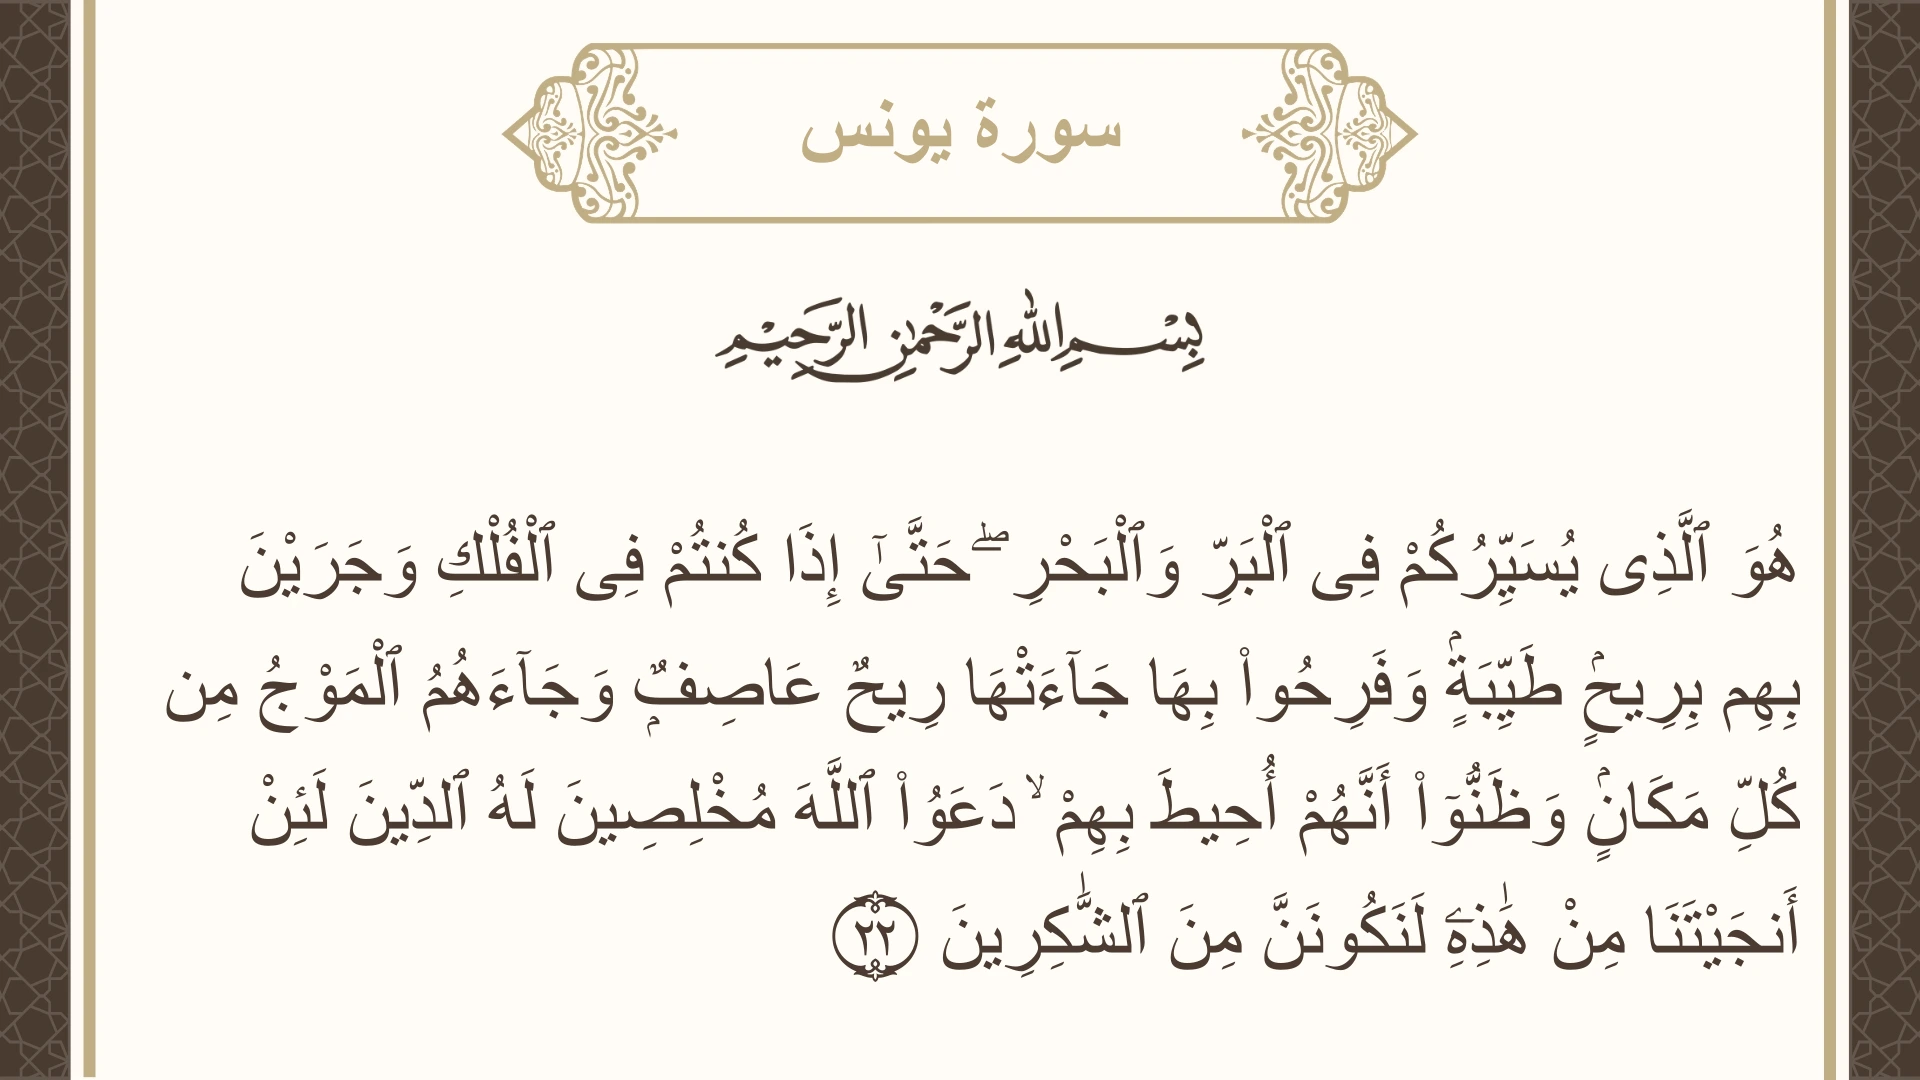 سورة يونس
بِسْمِ اللهِ الرَّحْمٰنِ الرَّحِيْمِ
هُوَ ٱلَّذِى يُسَيِّرُكُمْ فِى ٱلْبَرِّ وَٱلْبَحْرِ ۖ حَتَّىٰٓ إِذَا كُنتُمْ فِى ٱلْفُلْكِ وَجَرَيْنَ
بِهِم بِرِيحٍۢ طَيِّبَةٍۢ وَفَرِحُوا۟ بِهَا جَآءَتْهَا رِيحٌ عَاصِفٌۭ وَجَآءَهُمُ ٱلْمَوْجُ مِن
كُلِّ مَكَانٍۢ وَظَنُّوٓا۟ أَنَّهُمْ أُحِيطَ بِهِمْ ۙ دَعَوُا۟ ٱللَّهَ مُخْلِصِينَ لَهُ ٱلدِّينَ لَئِنْ
أَنجَيْتَنَا مِنْ هَـٰذِهِۦ لَنَكُونَنَّ مِنَ ٱلشَّـٰكِرِينَ ٢٢